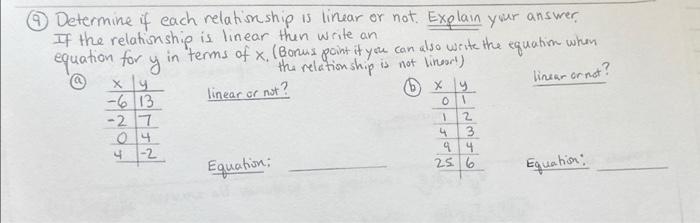 9 Determine if each relationship is linear or not. Explain your answer.
If the relationship is linear then write an
equation for y in terms of x. (Bonus point if you can also write the equation when
the relationship is not linear!)
a x y linear or not?
-6 13
-2 7
0 4
4 -2
Equation:
b x y linear or not?
0 1
1 2
4 3
9 4
25 6
Equation: